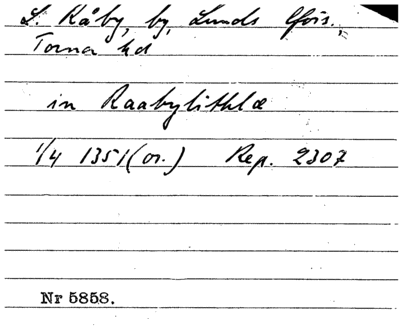 L. Råby, by, Lunds lfövs.,
Torna hd
in Raabylithlæ
1/4 1351 (or.) Rep. 2307
Nr 5858.